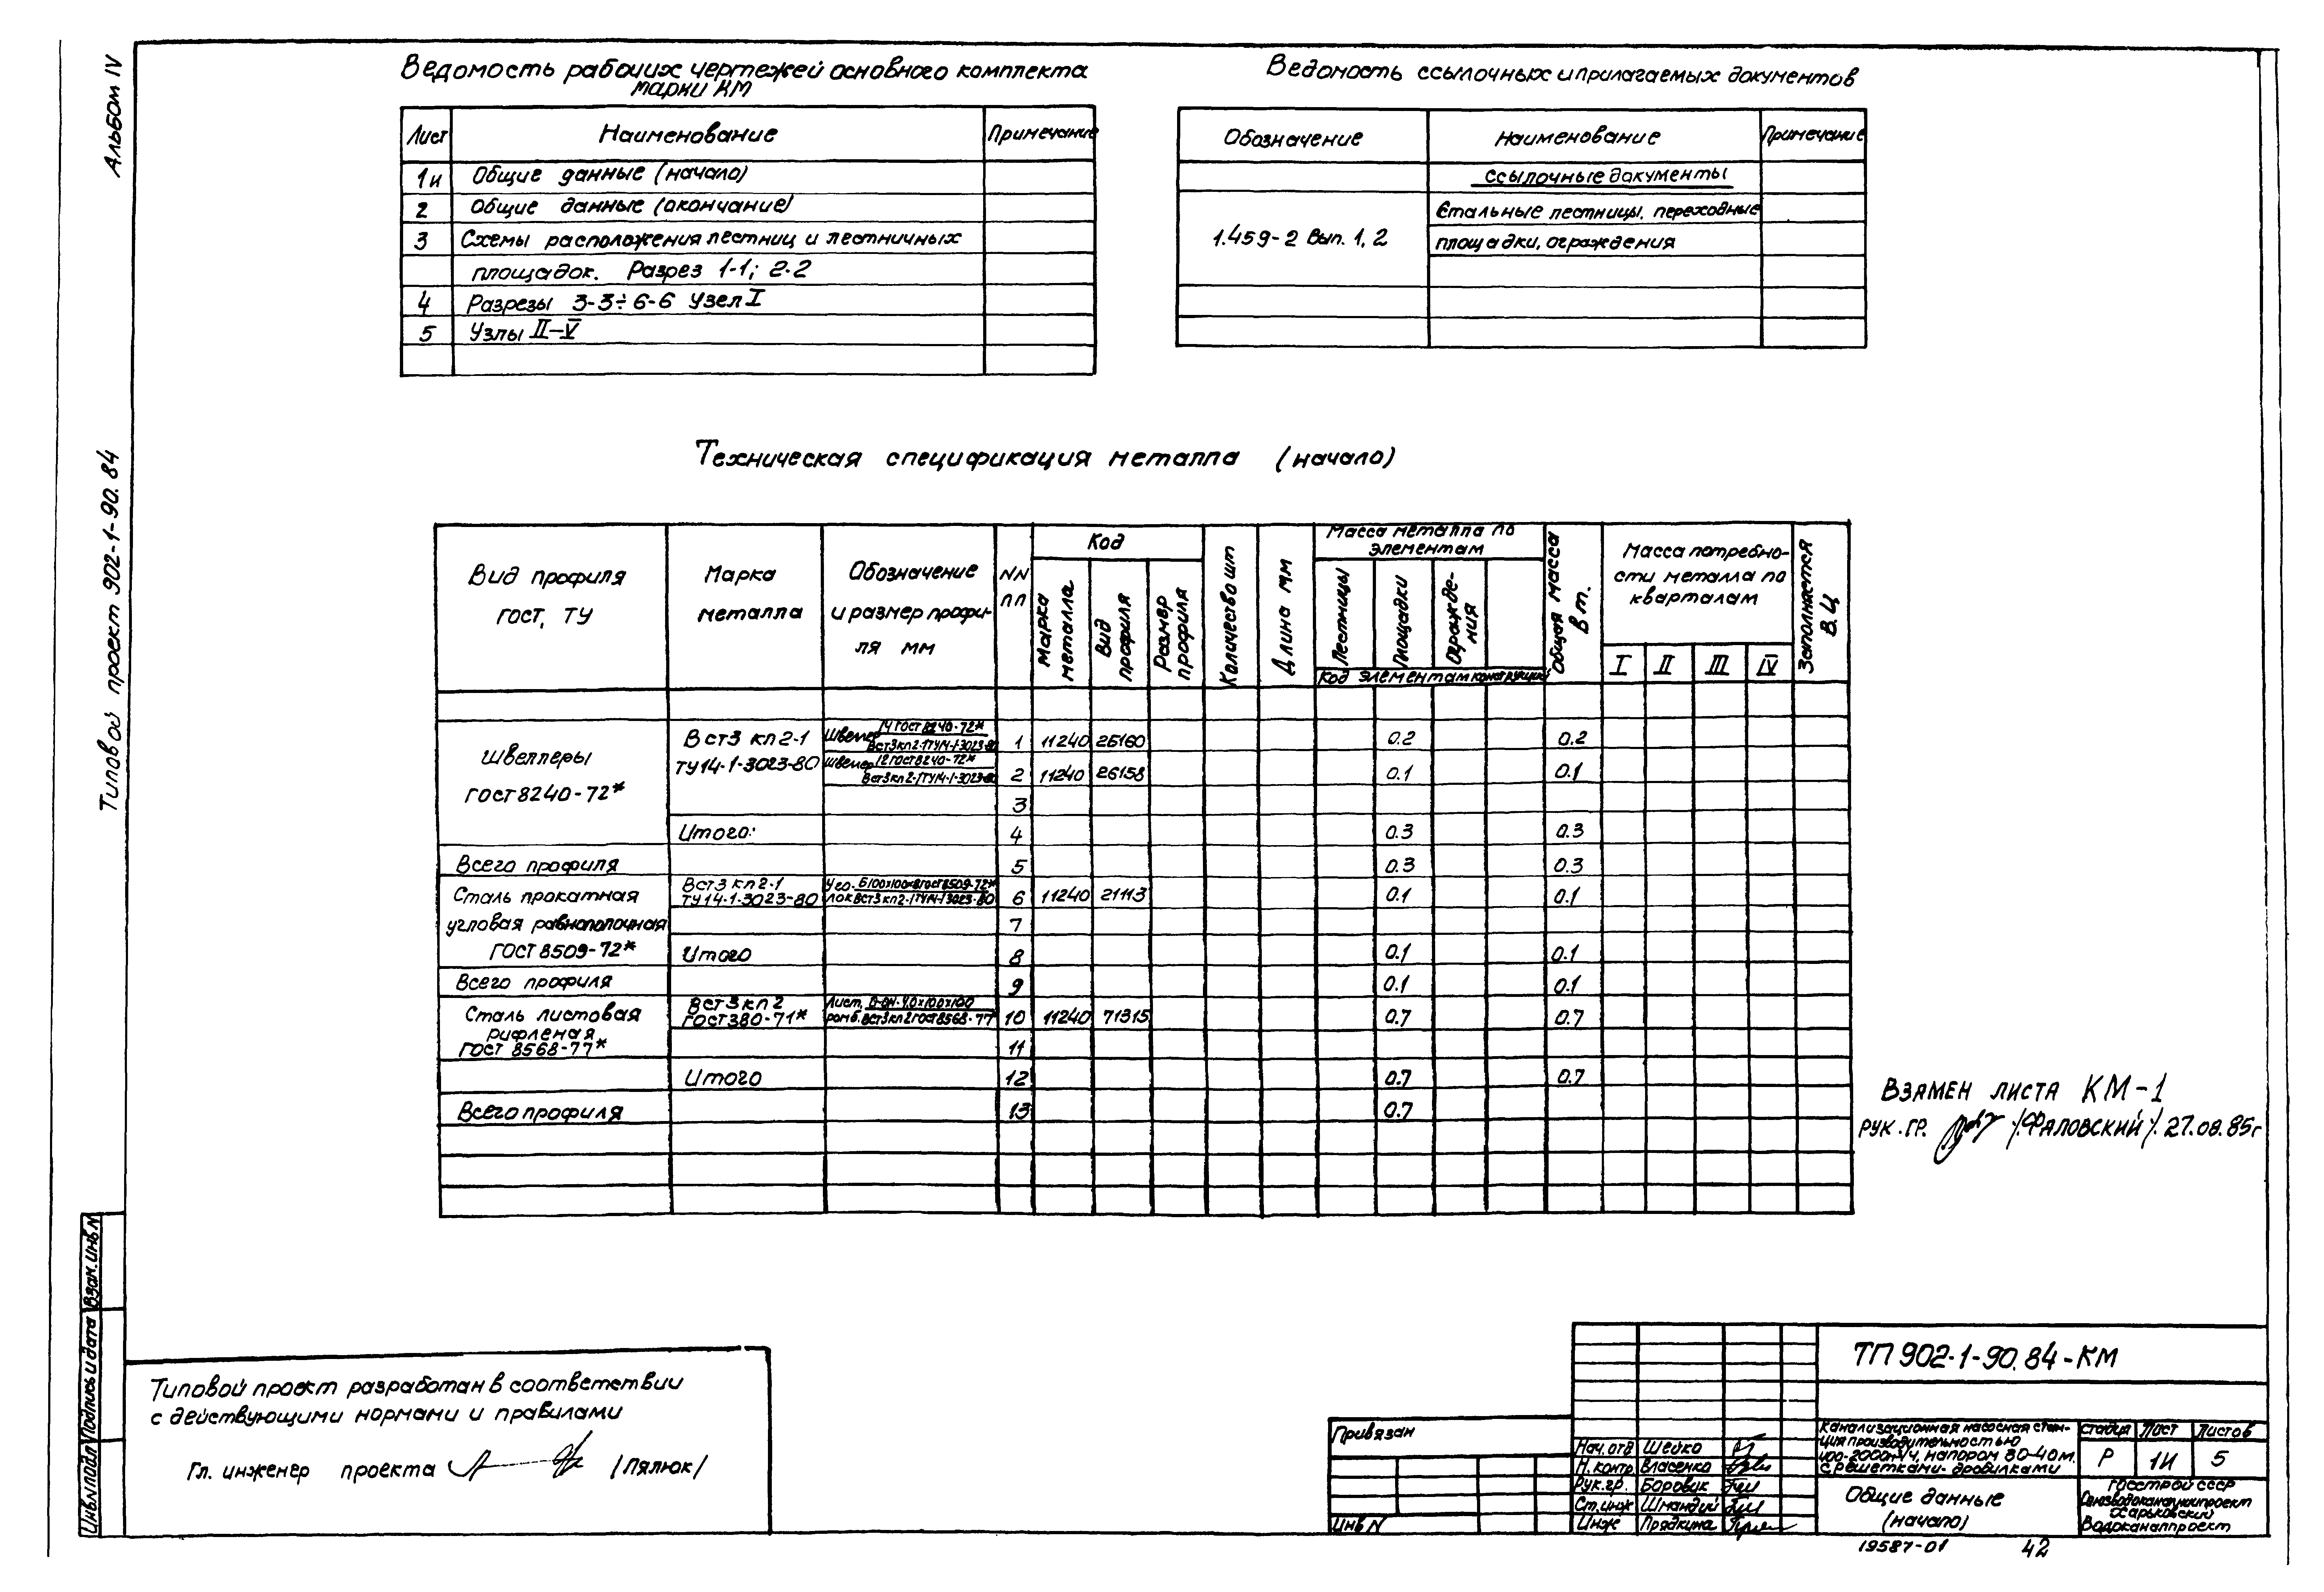 Альбом IV
Типовой проект 902-1-90.84
Ведомость рабочих чертежей основного комплекта
марки КМ
Лист Наименование Примечание
1и Общие данные (начало)
2 Общие данные (окончание)
3 Схемы расположения лестниц и лестничных
площадок. Разрез 1-1; 2-2
4 Разрезы 3-3÷6-6 Узел I
5 Узлы II–V
Ведомость ссылочных и прилагаемых документов
Обозначение Наименование Примечание
Ссылочные документы
1.459-2 Вып. 1, 2
Стальные лестницы, переходные
площадки, ограждения
Техническая спецификация металла (начало)
Вид профиля
ГОСТ, ТУ
Марка
металла
Обозначение
и размер профи-
ля мм
NN
пп
Код
Марка металла
Вид профиля
Размер профиля
Количество шт
Длина мм
Масса металла по
элементам
Лестницы
Площадки
Огражде-
ния
Код элементам конструкций
Общая масса
в т.
Масса потребно-
сти металла по
кварталам
I II III IV
Заполняется
В.Ц
Швеллеры
ГОСТ 8240-72*
ВСт3 кп2-1
ТУ14-1-3023-80
Швелер 14 ГОСТ 8240-72*
ВСт3кп2-1ТУ14-1-3023-80
1 11240 26160 0.2 0.2
Швелер 12 ГОСТ 8240-72*
ВСт3кп2-1ТУ14-1-3023-80
2 11240 26158 0.1 0.1
3
Итого: 4 0.3 0.3
Всего профиля 5 0.3 0.3
Сталь прокатная
угловая равнополочная
ГОСТ 8509-72*
ВСт3 кп2-1
ТУ14-1-3023-80
Уго- Б100х100х8ГОСТ8509-72*
лок ВСт3 кп2-1ТУ14-1-3023-80
6 11240 21113 0.1 0.1
7
Итого 8 0.1 0.1
Всего профиля 9 0.1 0.1
Сталь листовая
рифленая
ГОСТ 8568-77*
ВСт3 кп2
ГОСТ380-71*
Лист. 4.0х100х100
ромб. ВСт3кп2ГОСТ8568-77
10 11240 71315 0.7 0.7
11
Итого 12 0.7 0.7
Всего профиля 13 0.7
Взамен листа КМ-1
рук. гр. /Фаловский/ 27.08.85г
Инв.N подл Подпись и дата Взам.инв.N
Типовой проект разработан в соответствии
с действующими нормами и правилами
Гл. инженер проекта /Пялюк/
Привязан
Инв N
Нач.отд Шейко
Н.контр. Власенко
Рук.гр. Боровик
Ст.инж Шмандий
Инж Прядкина
ТП 902-1-90.84-КМ
Канализационная насосная стан-
ция производительностью
400-2000м³/ч, напором 30-40м.
с решетками-дробилками
Стадия Лист Листов
Р 1И 5
Общие данные
(начало)
Госстрой СССР
Союзводоканалниипроект
Харьковский
Водоканалпроект
19587-01 42